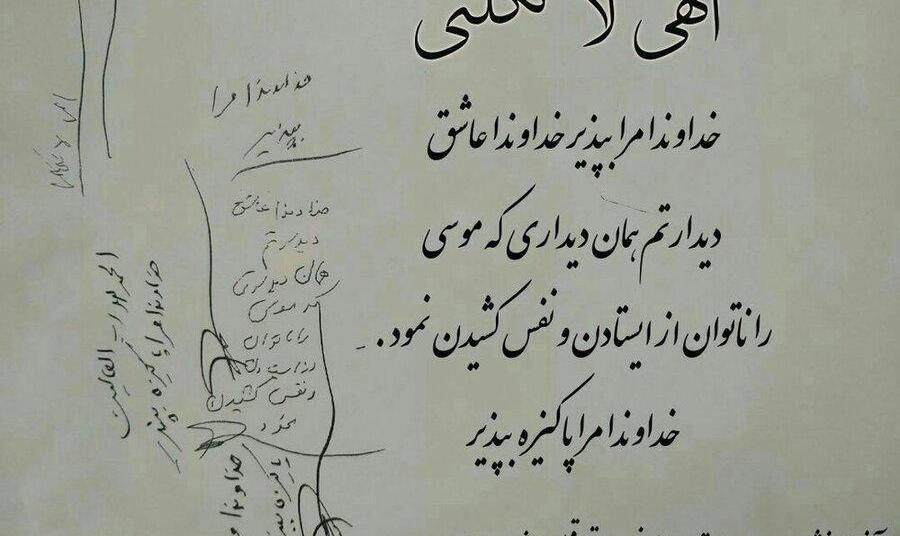 الهی لا تکلنی
خداوندا مرا بپذیر خداوندا عاشق
دیدارتم همان دیداری که موسی
را ناتوان از ایستادن و نفس کشیدن نمود.
خداوندا مرا پاکیزه بپذیر
خداوندا مرا
بپذیر
خداوندا عاشق
دیدارتم
همان دیداری
که موسی
را ناتوان
از ایستادن
و نفس کشیدن
نمود
الهی لا تکلنی
الحمد لله رب العالمین
خداوندا مرا پاکیزه بپذیر
خداوندا
پاکیزه